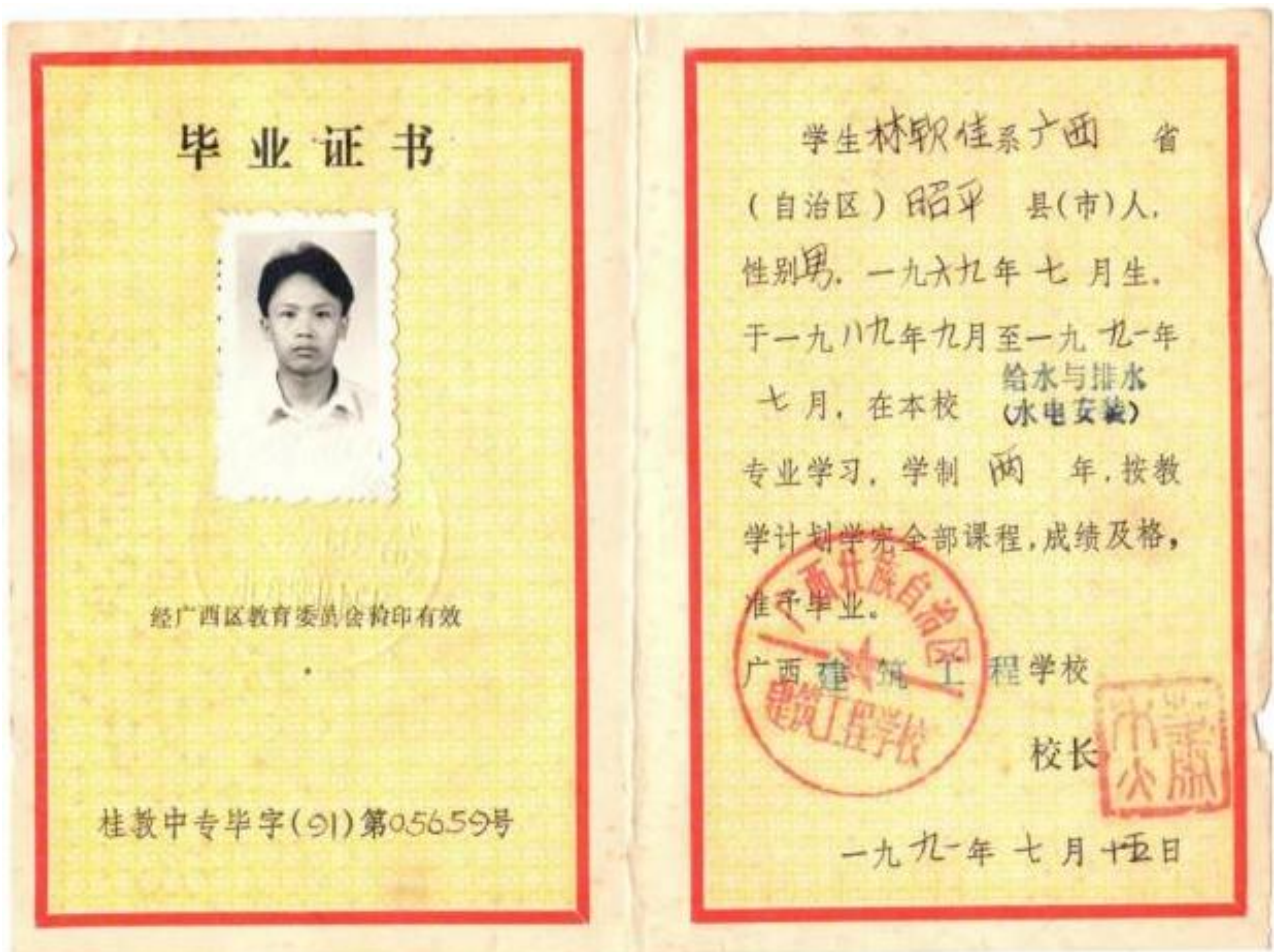 毕业证书
经广西区教育委员会验印有效
桂教中专毕字(91)第05659号
学生林钦佳系广西 省
(自治区)昭平 县(市)人,
性别男,一九六九年七月生,
于一九八九年九月至一九九一年
七月,在本校 给水与排水
(水电安装)
专业学习,学制两年,按教
学计划学完全部课程,成绩及格,
准予毕业。
广西建筑工程学校
广西壮族自治区
建筑工程学校
校长
一九九一年七月十五日